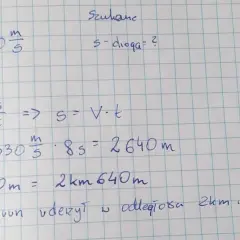 Szukane
m/s s - droga = ?
=> s = V · t
330 m/s · 8s = 2640 m
0m = 2km 640m
uderzył w odległości 2km